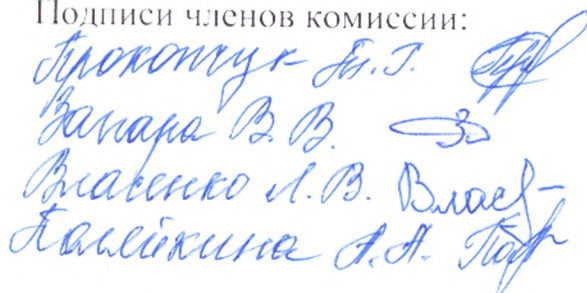 Подписи членов комиссии:
Прокопчук Т.Г.
Запара В. В.
Власенко Л. В. Влас
Палейкина А. А.